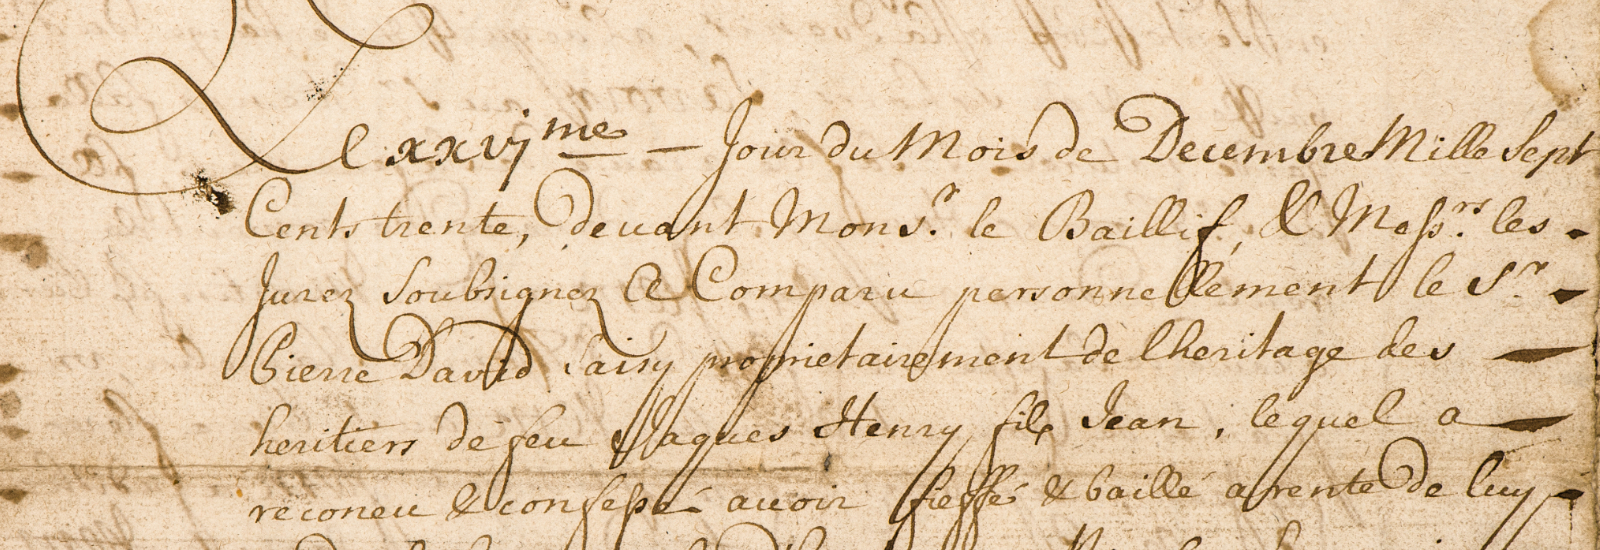 Le xxvj^me Jour du Mois de Decembre Mille Sept
Cents trente, devant Mons^r. le Baillif, & Mess^rs. les
Jurez Soubsignez Est Comparu personnellement le S^r
Pierre David saisy proprietairement de lheritage des
heritiers de feu Jaques Henry fils Jean, lequel a
reconeu & confessé avoir fieffé & baillé a rente de luy